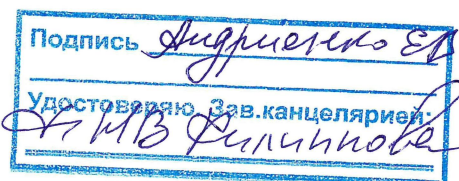 Подпись Андриенко ЕВ
Удостоверяю Зав.канцелярией:
НВ Филиппова